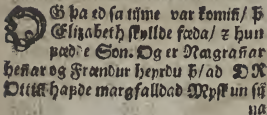 OG þa ed sa tijme var komiñ/ þ
Elizabeth skyllde fæda/ ꝛ hun
fædde Son. Og er Nægrañar
heñar og Frændur heyrdu þ/ ad DR
hafde margfalldad Mysk un sij
na